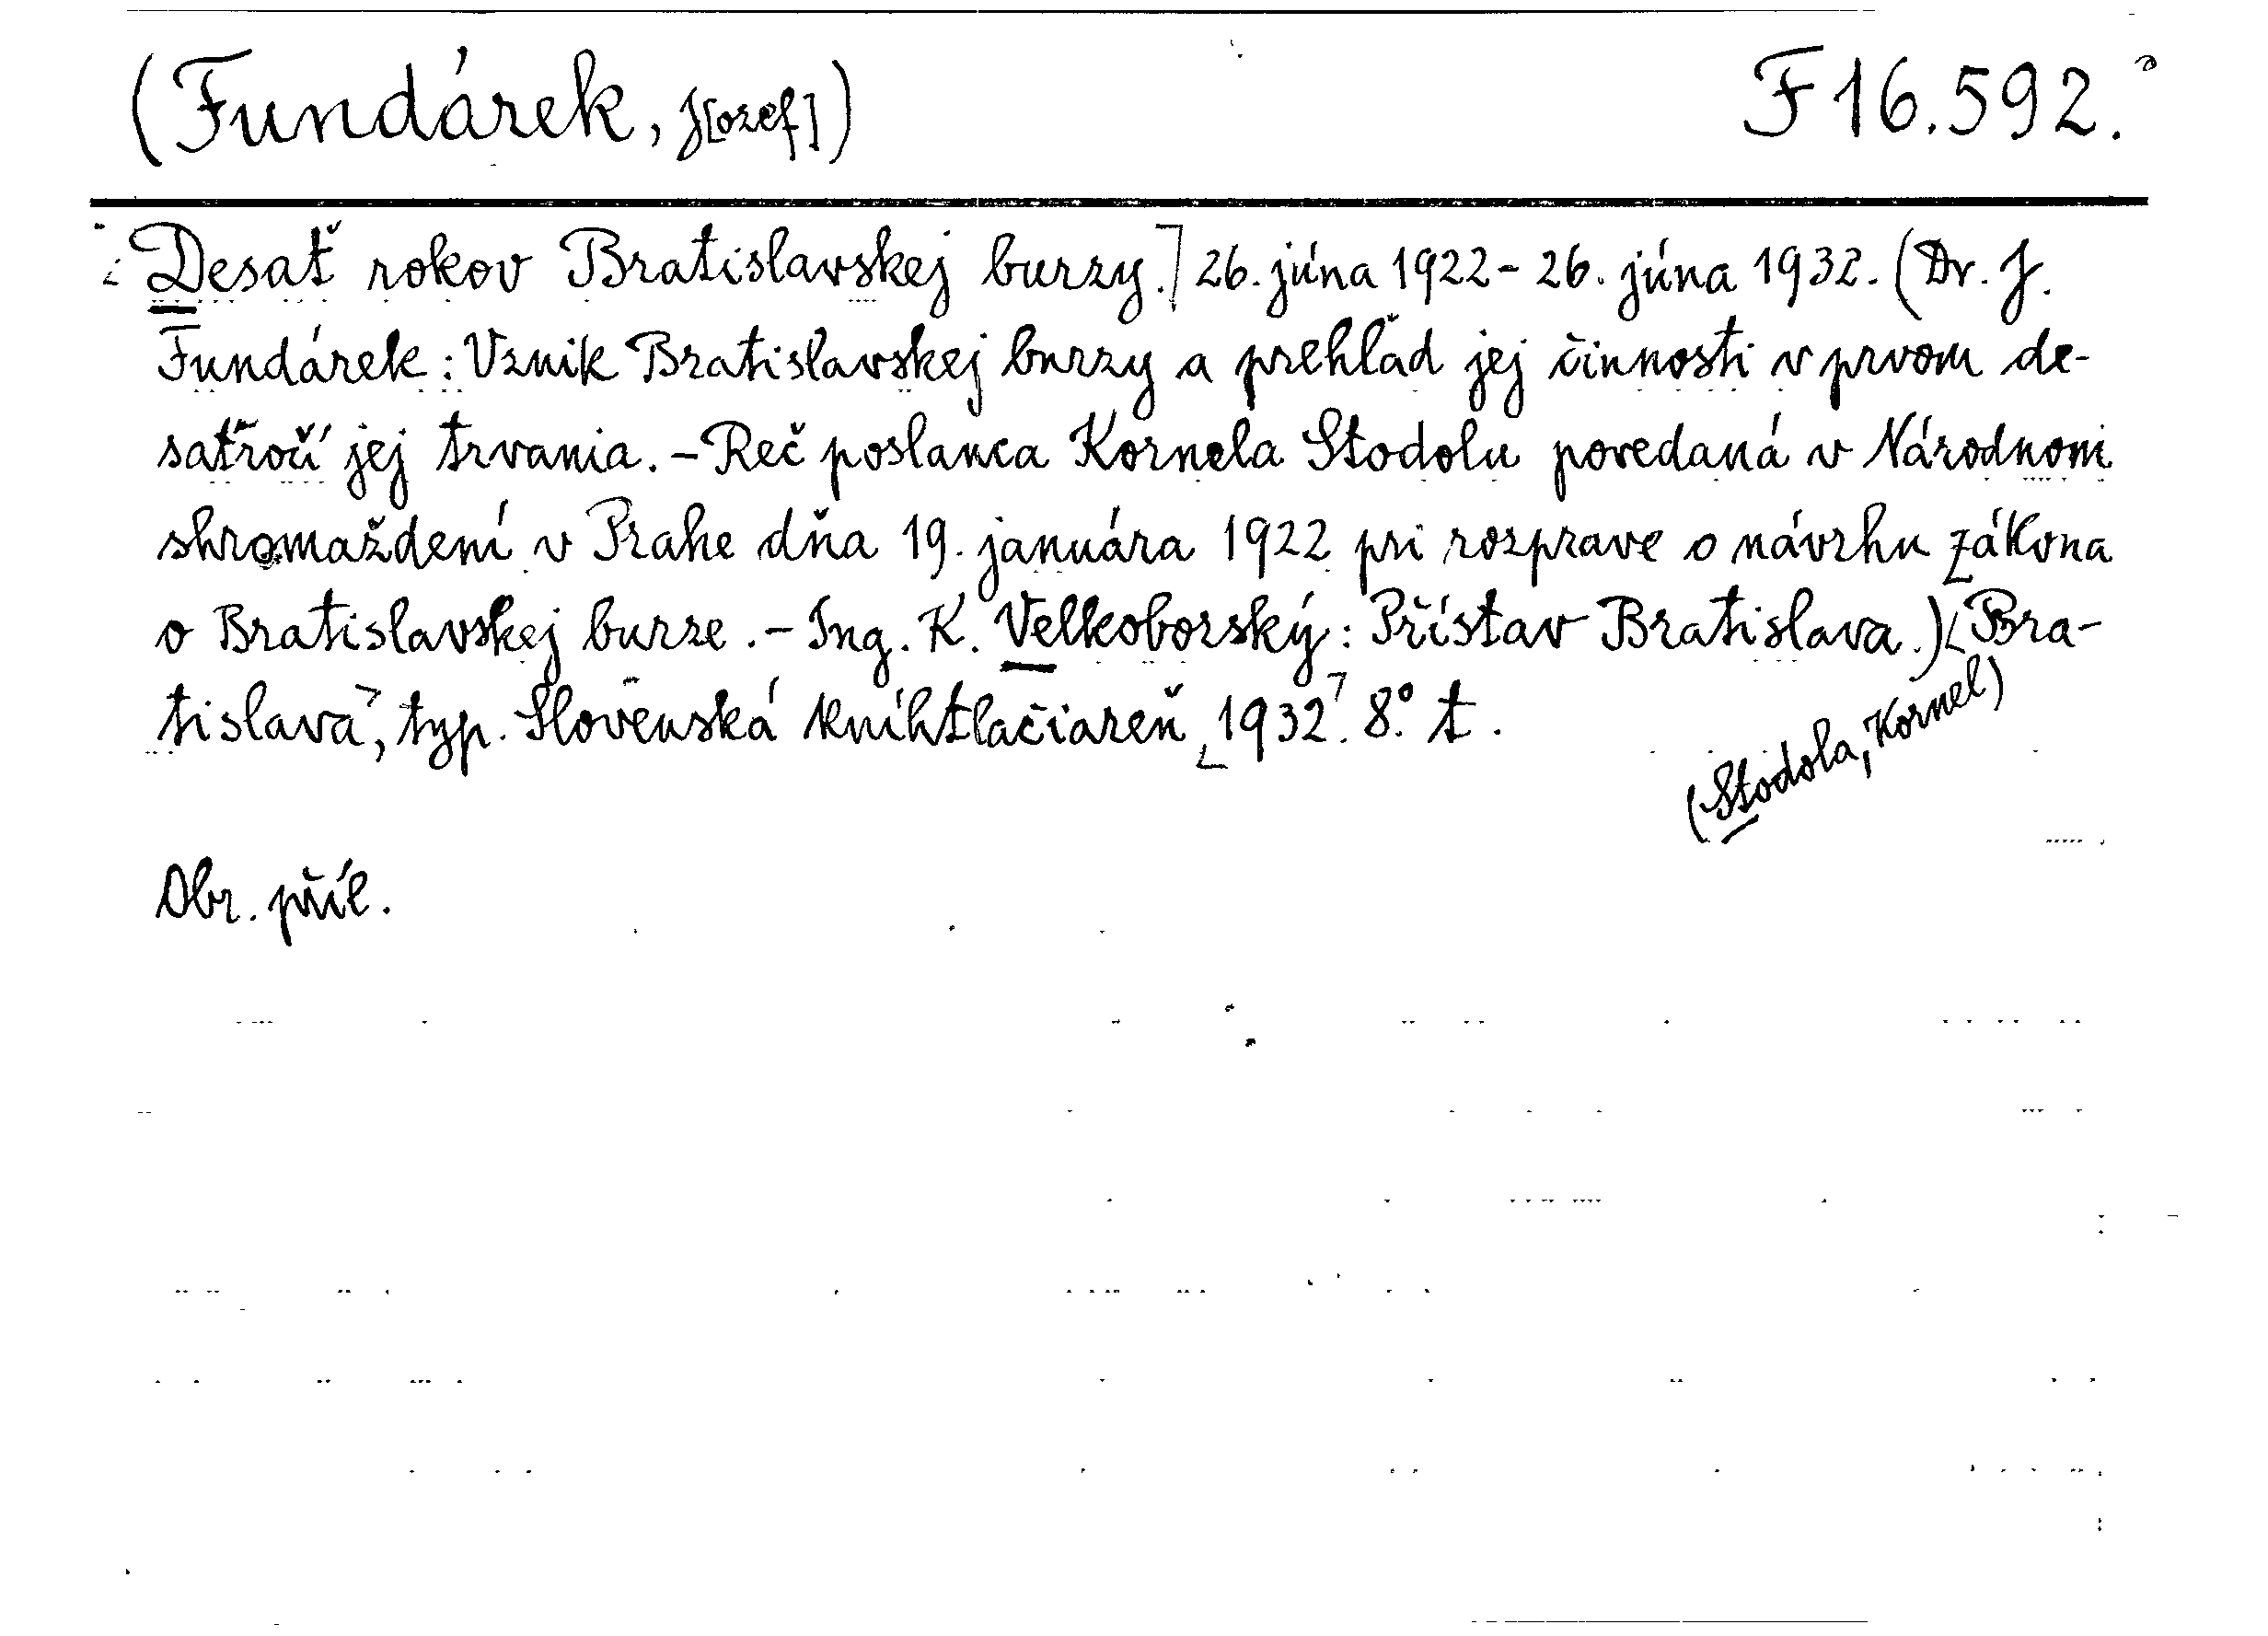 (Fundárek, J[ozef])
F 16.592.
Desať rokov Bratislavskej burzy.] 26. júna 1922 - 26. júna 1932. (Dr. J.
Fundárek: Vznik Bratislavskej burzy a prehľad jej činnosti v prvom de-
saťročí jej trvania. - Reč poslanca Kornela Stodolu povedaná v Národnom
shromaždení v Prahe dňa 19. januára 1922 pri rozprave o návrhu zákona
o Bratislavskej burze. - Ing. K. Velkoborský: Přístav Bratislava.) [Bra-
tislava], typ. Slovenská kníhtlačiareň [1932]. 8° t.
(Stodola, Kornel)
Obr. příl.